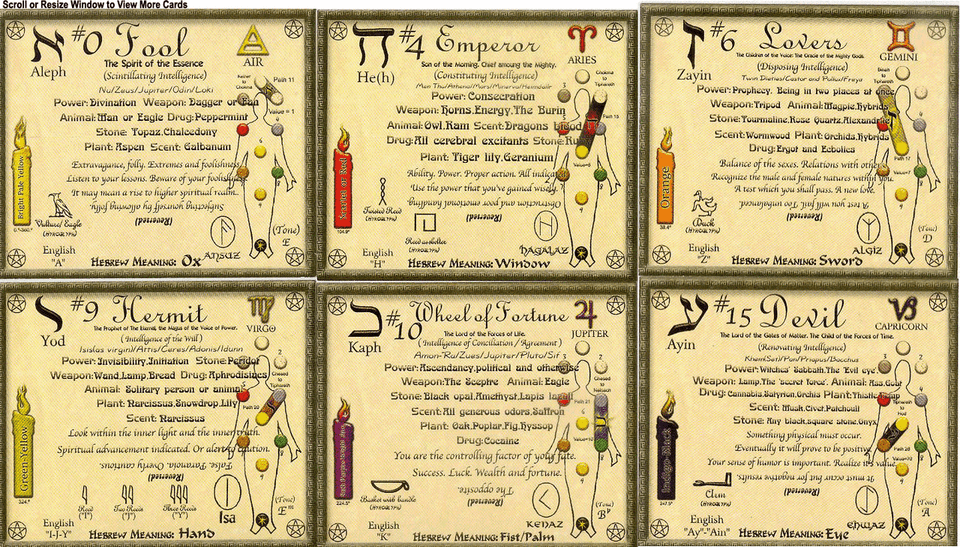 Scroll or Resize Window to View More Cards
א #0 Fool
Aleph
AIR
The Spirit of the Essence
(Scintillating Intelligence)
Nu/Zeus/Jupiter/Odin/Loki
Path 11
Power: Divination Weapon: Dagger or Fan
Value = 1
Animal: Man or Eagle Drug: Peppermint
Stone: Topaz, Chalcedony
Plant: Aspen Scent: Galbanum
Bright Pale Yellow
Extravagance, folly. Extremes and foolishness.
Listen to your lessons. Beware of your foolish
It may mean a rise to higher spiritual realm.
Subjecting yourself by allowing folly.
(Reversed)
Vulture/Eagle
(HYROGLYPH)
(Tone)
E
English
"A"
ANSUZ
HEBREW MEANING: Ox
ה #4 Emperor
He(h)
ARIES
Son of the Morning. Chief among the Mighty.
(Constituting Intelligence)
Men Thu/Athena/Mars/Minerva/Heimdalr
Power: Consecration
Weapon: Horns, Energy, The Burin
Path 15
Animal: Owl, Ram Scent: Dragons blood
Drug: All cerebral excitants Stone: Ru
Plant: Tiger lily, Geranium
Ability. Power. Proper action. All indicat
Use the power that you've gained wisely.
(Reversed)
Twisted Reed
(HYROGLYPH)
Reed as shelter
(HYROGLYPH)
English
"H"
HAGALAZ
HEBREW MEANING: Window
ז #6 Lovers
Zayin
GEMINI
The Children of the Voice: The Oracle of the Mighty Gods.
(Disposing Intelligence)
Twin Dieties/Castor and Pollux/Freya
Power: Prophecy. Being in two places at once.
Weapon: Tripod Animal: Magpie, Hybrids
Stone: Tourmaline, Rose Quartz, Alexandrite
Scent: Wormwood Plant: Orchids, Hybrids
Drug: Ergot and Ecbolics
Path 17
Orange
Balance of the sexes. Relations with other
Recognize the male and female natures within you.
A test which you shall pass. A new love.
A test you will fail. Too unbalanced.
(Reversed)
Duck
(HYROGLYPH)
(Tone)
D
English
"Z"
ALGIZ
HEBREW MEANING: Sword
י #9 Hermit
Yod
VIRGO
The Prophet of The Eternal, the Magus of the Voice of Power.
(Intelligence of the Will)
Isis(as virgin)/Attis/Ceres/Adonis/Idunn
Power: Invisibility, Initiation Stone: Peridot
Weapon: Wand, Lamp, Bread Drug: Aphrodisines
Animal: Solitary person or animal
Plant: Narcissus, Snowdrop, Lily
Path 20
Scent: Narcissus
Green-Yellow
Look within the inner light and the inner truth.
Spiritual advancement indicated. Or alert caution.
False. Paranoid. Overly cautious.
(Reversed)
Reed
("I")
Two Reeds
("J")
Three Reeds
("Y")
(Tone)
English
"I-J-Y"
Isa
HEBREW MEANING: Hand
כ #10 Wheel of Fortune
Kaph
JUPITER
The Lord of the Forces of Life.
(Intelligence of Conciliation / Agreement)
Amon-Ra/Zues/Jupiter/Pluto/Sif
Power: Ascendancy, political and otherwise
Weapon: The Sceptre Animal: Eagle
Stone: Black opal, Amethyst, Lapis lazuli
Path 21
Scent: All generous odors, Saffron
Plant: Oak, Poplar, Fig, Hyssop
Drug: Cocaine
You are the controlling factor of your fate.
Success. Luck. Wealth and fortune.
The opposite.
(Reversed)
Basket with handle
(HYROGLYPH)
(Tone)
English
"K"
KENAZ
HEBREW MEANING: Fist/Palm
ע #15 Devil
Ayin
CAPRICORN
The Lord of the Gates of Matter. The Child of the Forces of Time.
(Renovating Intelligence)
Khem/Set/Pan/Priapus/Bacchus
Power: Witches' Sabbath, The Evil eye.
Weapon: Lamp, The 'secret force'. Animal: Ass, Goat
Drug: Cannabis, Satyrion, Orchis Plant: Thistle, Hemp
Scent: Musk, Civet, Patchouli
Stone: Any black, Square stone, Onyx
Indigo-Black
Something physical must occur.
Eventually it will prove to be positive.
Your sense of humor is important. Realize its value.
It must occur but of negative results.
(Reversed)
Path 26
(HYROGLYPH)
(Tone)
A
English
"Ay"-"Ain"
EHWAZ
HEBREW MEANING: Eye